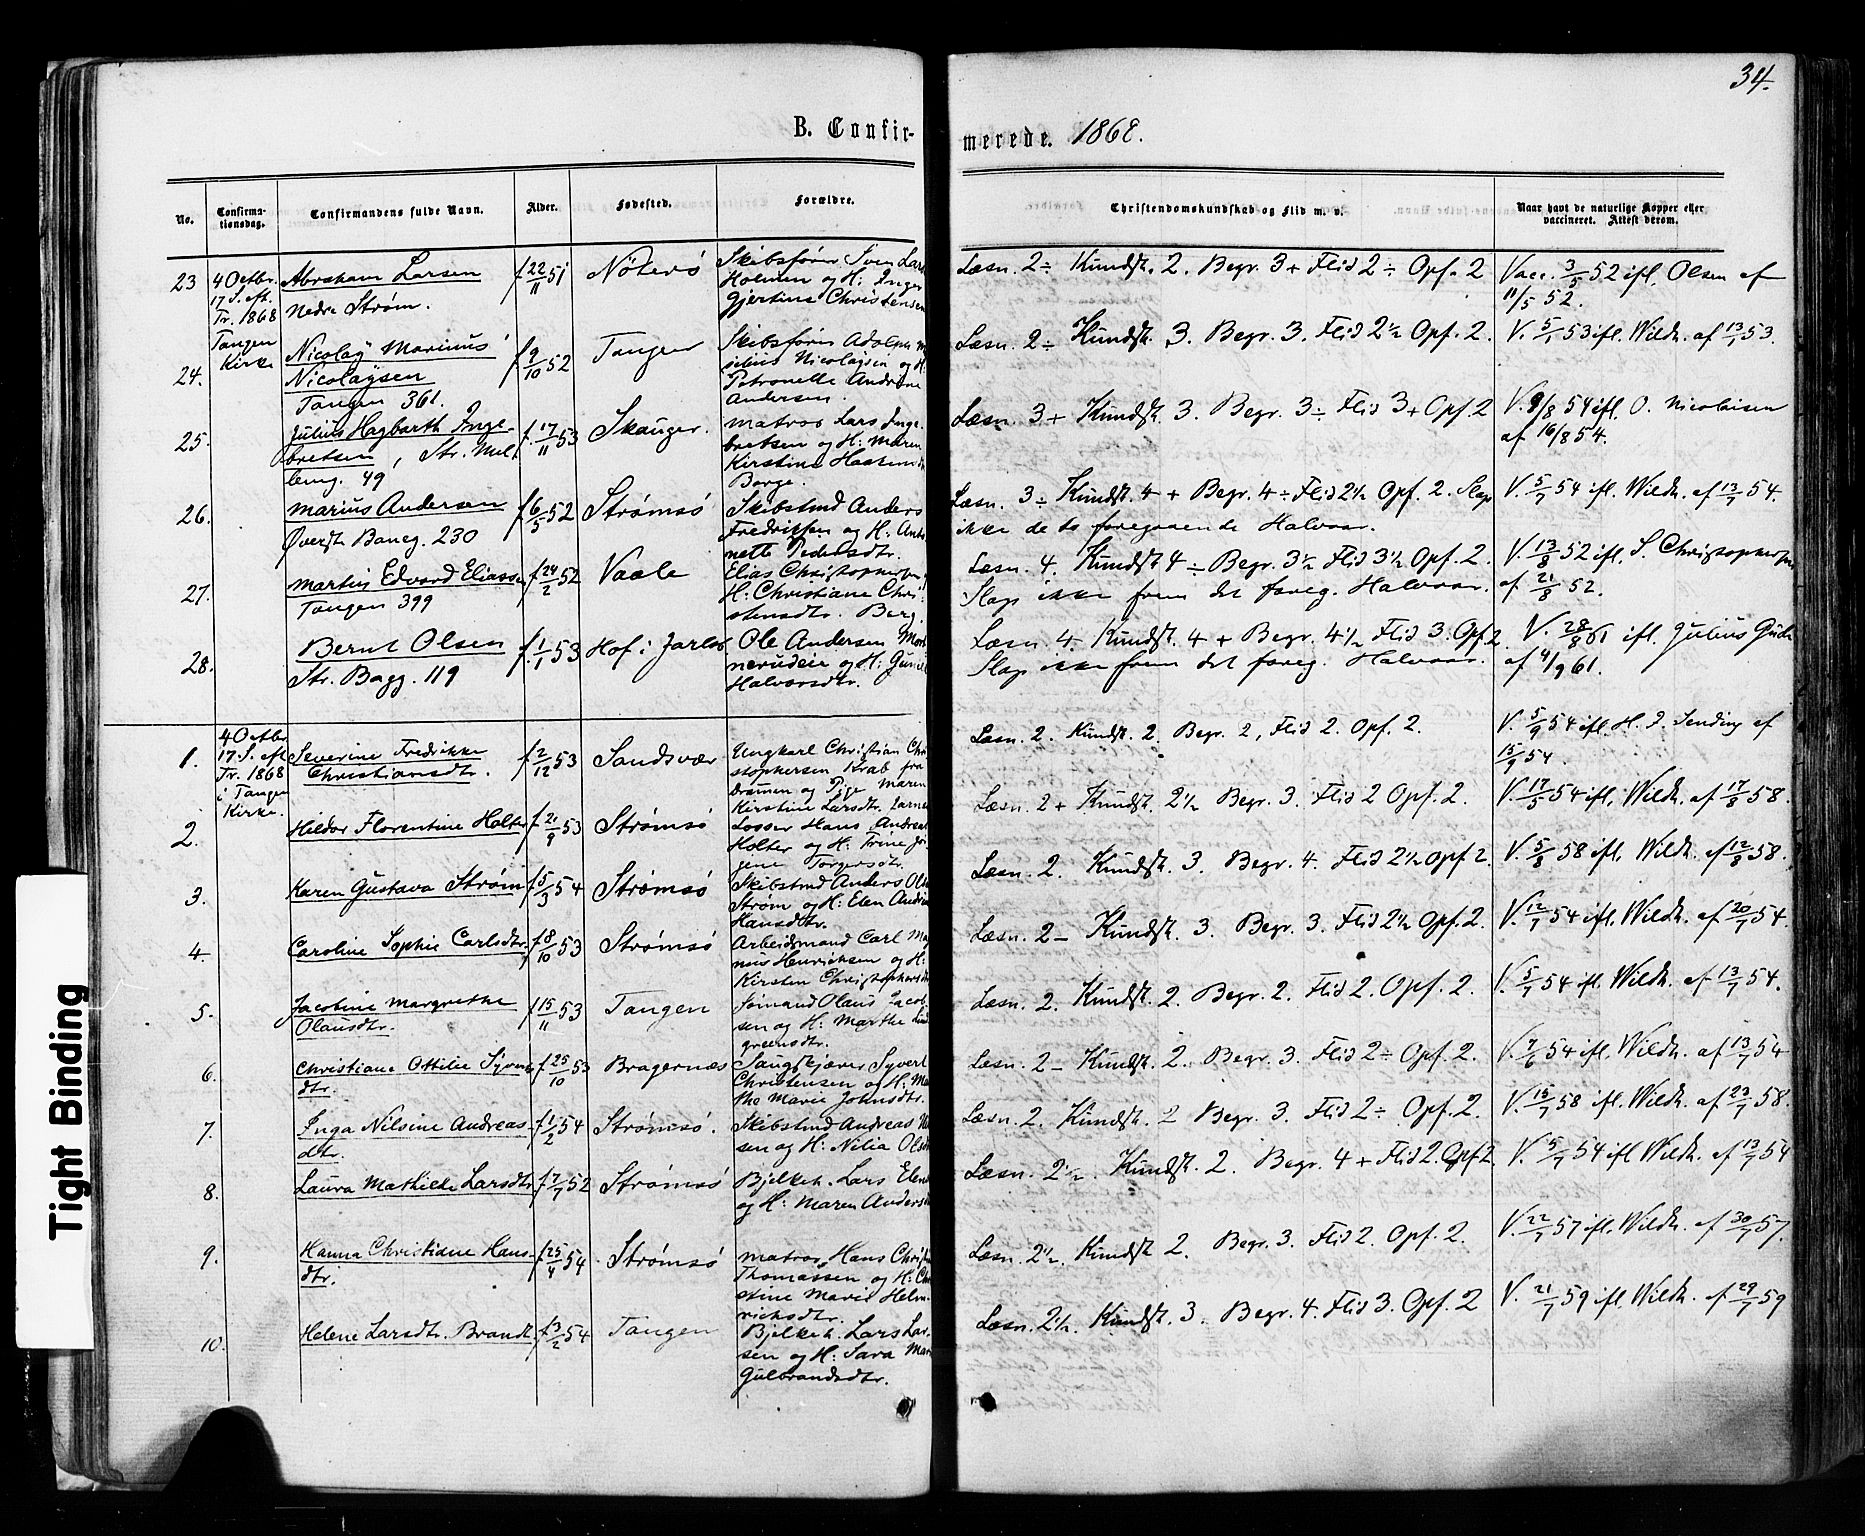 34.
B. Confir-
merede. 1868.
No.
Confirma-
tionsdag.
Confirmandens fulde Navn.
Alder.
Fødested.
Forældre.
Christendomskundskab og Flid m. v.
Naar havt de naturlige Kopper eller
vaccineret. Attest derom.
23
4 Octbr.
17 S. eft.
Tr. 1868
Tangen
Kirke
Abraham Larsen
Nedre Strøm.
f. 22/11 51
Nøterø
Skibsfører Sven Lars
Holmen og H: Inger
Gjertine Christensen
Læsn. 2 ÷ Kundsk. 2. Begr. 3 + Flid 2 ÷ Opf. 2
Vacc. 3/5 52 ifl. Olsen af
11/5 52.
24.
Nicolay Marinus
Nicolaysen
Tangen 361.
f. 9/10 52
Tangen
Skibsfører Adolph
Nicolaysen og H:
Petronelle Andrine
Andersen.
Læsn. 2 ÷ Kundsk. 3. Begr. 3. Flid 2 1/2 Opf. 2.
V. 5/7 53 ifl. Wildh. af 13/7 53.
25.
Julius Hagbarth Inge-
bretsen, Str. Mel
lemg. 49
f. 17/11 53
Skauger.
Matros Lars Inge-
bretsen og H: Maren
Kirstine
Borge.
Læsn. 3 + Kundsk. 3. Begr. 3 ÷ Flid 3 + Opf. 2
V. 9/8 54 ifl. O. Nicolaisen
af 16/8 54.
26.
Marius Andersen
Øverst. Baneg. 230
f. 6/5 52
Strømsø
Skibstmd Anders
Fredriksen og H: Anto
nette Pedersdtr.
Læsn. 3 ÷ Kundsk. 4 + Begr. 4 ÷ Flid 2 1/2 Opf. 2. Slap
ikke de to foregaaende Halvaar.
V. 5/7 54 ifl. Wildh. af 13/7 54.
27.
Martin Edvard Eliassen
Tangen 399
f. 24/2 52
Vaale
Elias Christophersen
H: Christiane Chri-
stensdtr. Berg.
Læsn. 4. Kundsk. 4 ÷ Begr. 3 1/2 Flid 3 1/2 Opf. 2.
Slap ikke frem det foreg. Halvaar.
V. 13/8 52 ifl. S. Christophersen
af 21/8 52.
28.
Bernt Olsen
Str. Bagg. 119
f. 1/1 53
Hof i Jarlsb
Ole Andersen
og H: Gunil
Halvorsdtr.
Læsn. 4. Kundsk. 4 + Begr. 4 1/2 Flid 3. Opf. 2
Slap ikke frem det foreg. Halvaar.
V. 28/8 61 ifl. Julius
af 4/9 61.
1.
4 Octbr.
17 S. eft
Tr. 1868
i Tangen
Kirke.
Severine Fredrikke
Christiansdtr.
f. 2/12 53
Sandsvær
Ungkarl Christian Chri
stophersen Krab fra
Dramen og Pige Maren
Kirstine Larsdtr.
Læsn. 2. Kundsk. 2. Begr. 2, Flid 2. Opf. 2.
V. 5/9 54 ifl. H. J. Sending af
15/9 54.
2.
Hildor Florentine Holter
f. 21/9 53
Strømsø
Losser Hans Andreas
Holter og H: Trine Jø
gene Torgersdtr.
Læsn. 2 + Kundsk. 2 1/2 Begr. 3. Flid 2 Opf. 2.
V. 17/5 54 ifl. Wildh. af 17/8 58.
3.
Karen Gustava Strøm
f. 5/3 54
Strømsø
Skibstmd Anders Ols
Strøm og H: Elen Andrin
Hansdtr.
Læsn. 2. Kundsk. 3. Begr. 4. Flid 2 1/2 Opf. 2.
V. 5/8 58 ifl. Wildh. af 12/8 58.
4.
Caroline Sophie Carlsdtr.
f. 8/10 53
Strømsø
Arbeidsmand Carl Mag
nus Henriksen og H:
Kirsten Christophersdtr
Læsn. 2 – Kundsk. 3. Begr. 3. Flid 2 1/2 Opf. 2.
V. 12/7 54 ifl. Wildh. af 20/7 54.
5.
Jacobine Margrethe
Olausdtr.
f. 15/11 53
Tangen
Sømand Olaus Jacob-
sen og H: Marthe Lind
greensdtr.
Læsn. 2. Kundsk. 2. Begr. 2. Flid 2. Opf. 2.
V. 5/7 54 ifl. Wildh. af 13/7 54.
6.
Christiane Ottilie Syverts
dtr.
f. 25/10 53
Bragernæs
Syvert
Christensen og H: Mar
the Marie Johnsdtr.
Læsn. 2 – Kundsk. 2. Begr. 3. Flid 2 ÷ Opf. 2.
V. 7/6 54 ifl. Wildh. af 13/7 54
7.
Inga Nilsine Andreas-
dtr.
f. 1/2 54
Strømsø.
Skibstmd Andreas Nil
sen og H: Nilia Olsdtr
Læsn. 2. Kundsk. 2 Begr. 3. Flid 2 ÷ Opf. 2.
V. 15/7 58 ifl. Wildh. af 23/7 58.
8.
Laura Mathilde Larsdtr.
f. 7/7 52
Strømsø
Bjelkeh. Lars
og H: Maren Anders
Læsn. 2 1/2. Kundsk. 2. Begr. 4 + Flid 2. Opf. 2.
V. 5/7 54 ifl. Wildh. af 13/7 54
9.
Hanna Christiane Hans-
dtr.
f. 25/4 54
Strømsø
Matros Hans Christ
Thomassen og H: Chr
stine Marie Helm-
richsdtr.
Læsn. 2 1/2. Kundsk. 2. Begr. 3. Flid 2. Opf. 2.
V. 22/7 57 ifl. Wildh. af 30/7 57.
10.
Helene Larsdtr. Brandt
f. 3/2 54
Tangen
Bjelkeh. Lars Lar-
sen og H: Sara Mar
Gulbrandsdtr.
Læsn. 2 1/2. Kundsk. 3. Begr. 4. Flid 3. Opf. 2
V. 21/7 59 ifl. Wildh. af 29/7 59
Tight Binding